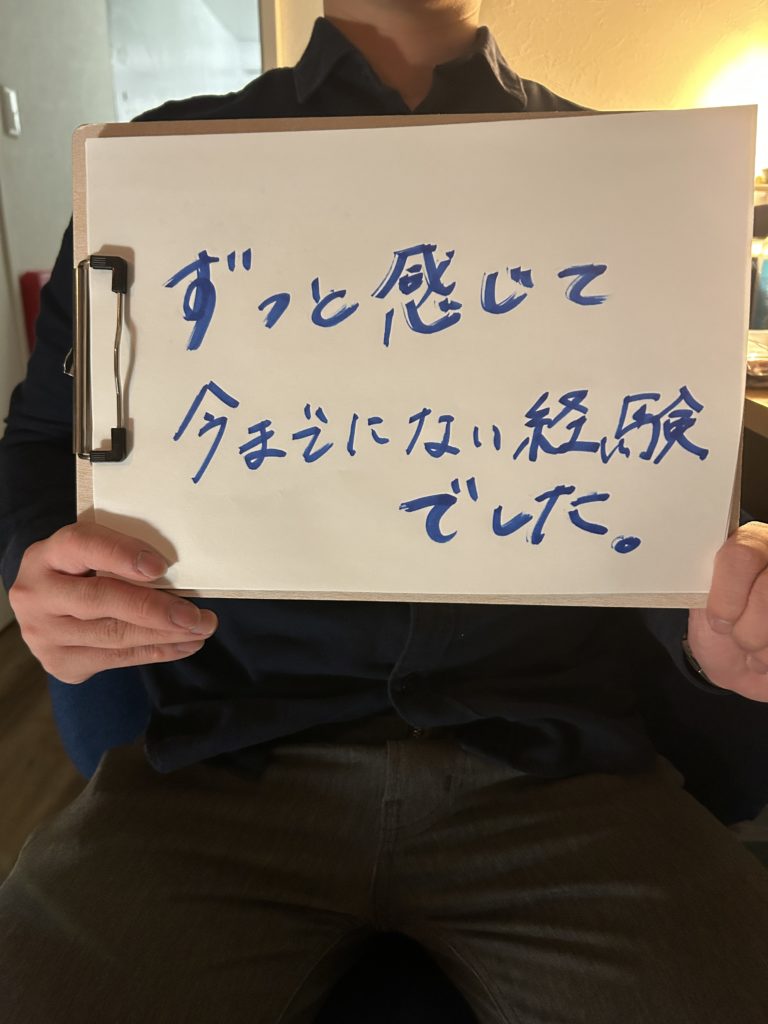 ずっと感じて
今までにない経験
でした。